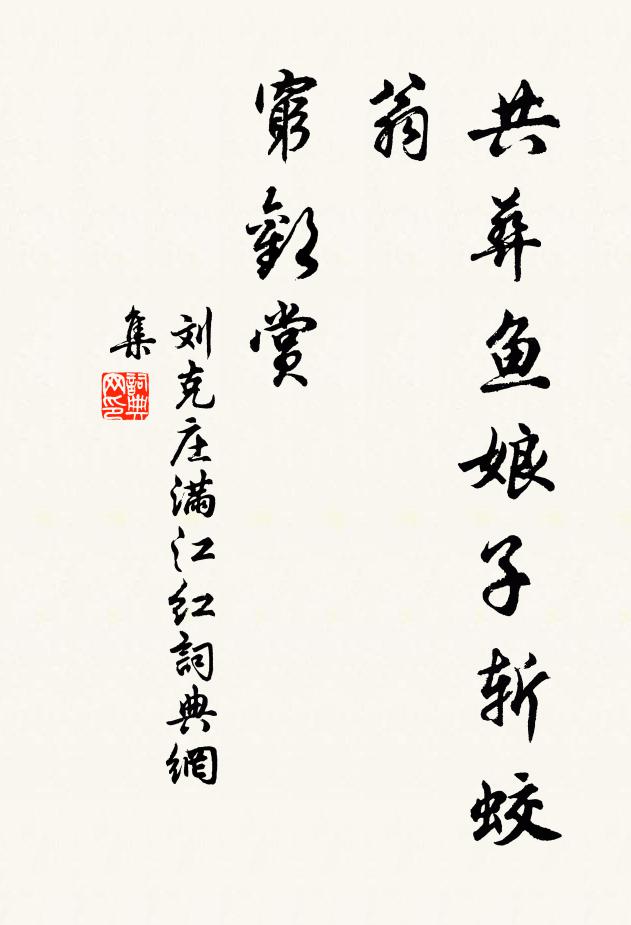 共葬鱼娘子斩蛟
翁
窮歡赏
刘克庄满江红詞典網
集
詞典网印